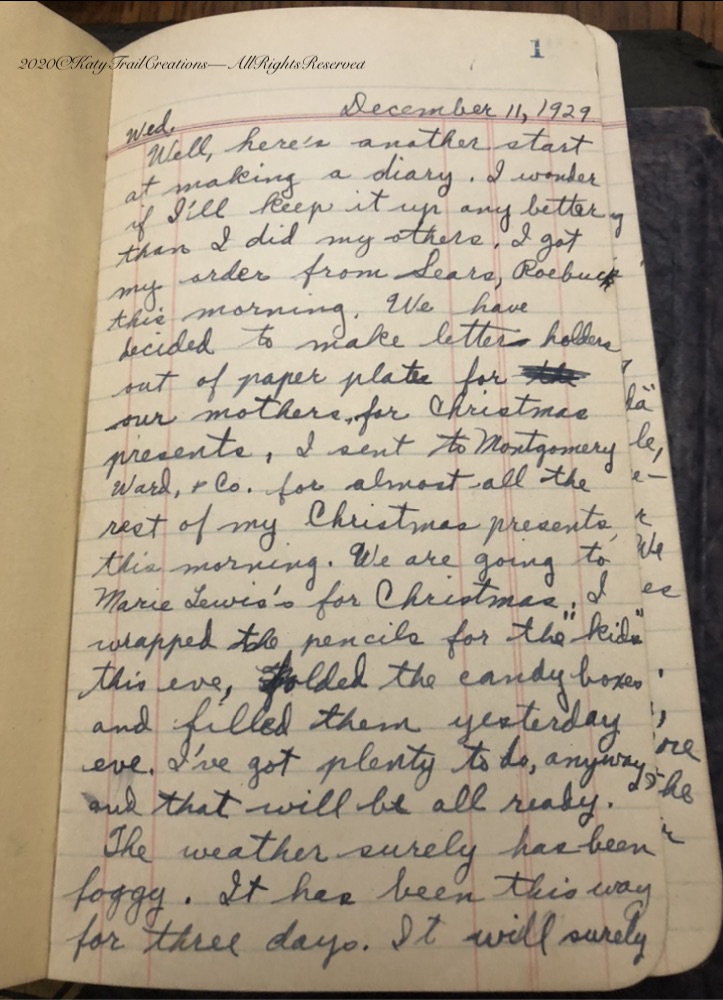 1
2020©KatyTrailCreations—AllRightsReserved
December 11, 1929
Wed.
Well, here's another start
at making a diary. I wonder
if I'll keep it up any better
than I did my others. I got
my order from Sears, Roebuck
this morning. We have
decided to make letter holders
out of paper plates for the
our mothers, for Christmas
presents, I sent to Montgomery
Ward, & Co. for almost all the
rest of my Christmas presents,
this morning. We are going to
Marie Lewis's for Christmas, I
wrapped the pencils for the "kids"
this eve, folded the candy boxes
and filled them yesterday
eve. I've got plenty to do, anyway,
and that will be all ready.
The weather surely has been
foggy. It has been this way
for three days. It will surely
y
la"
le,
e-
r
We
es
ore
he
r